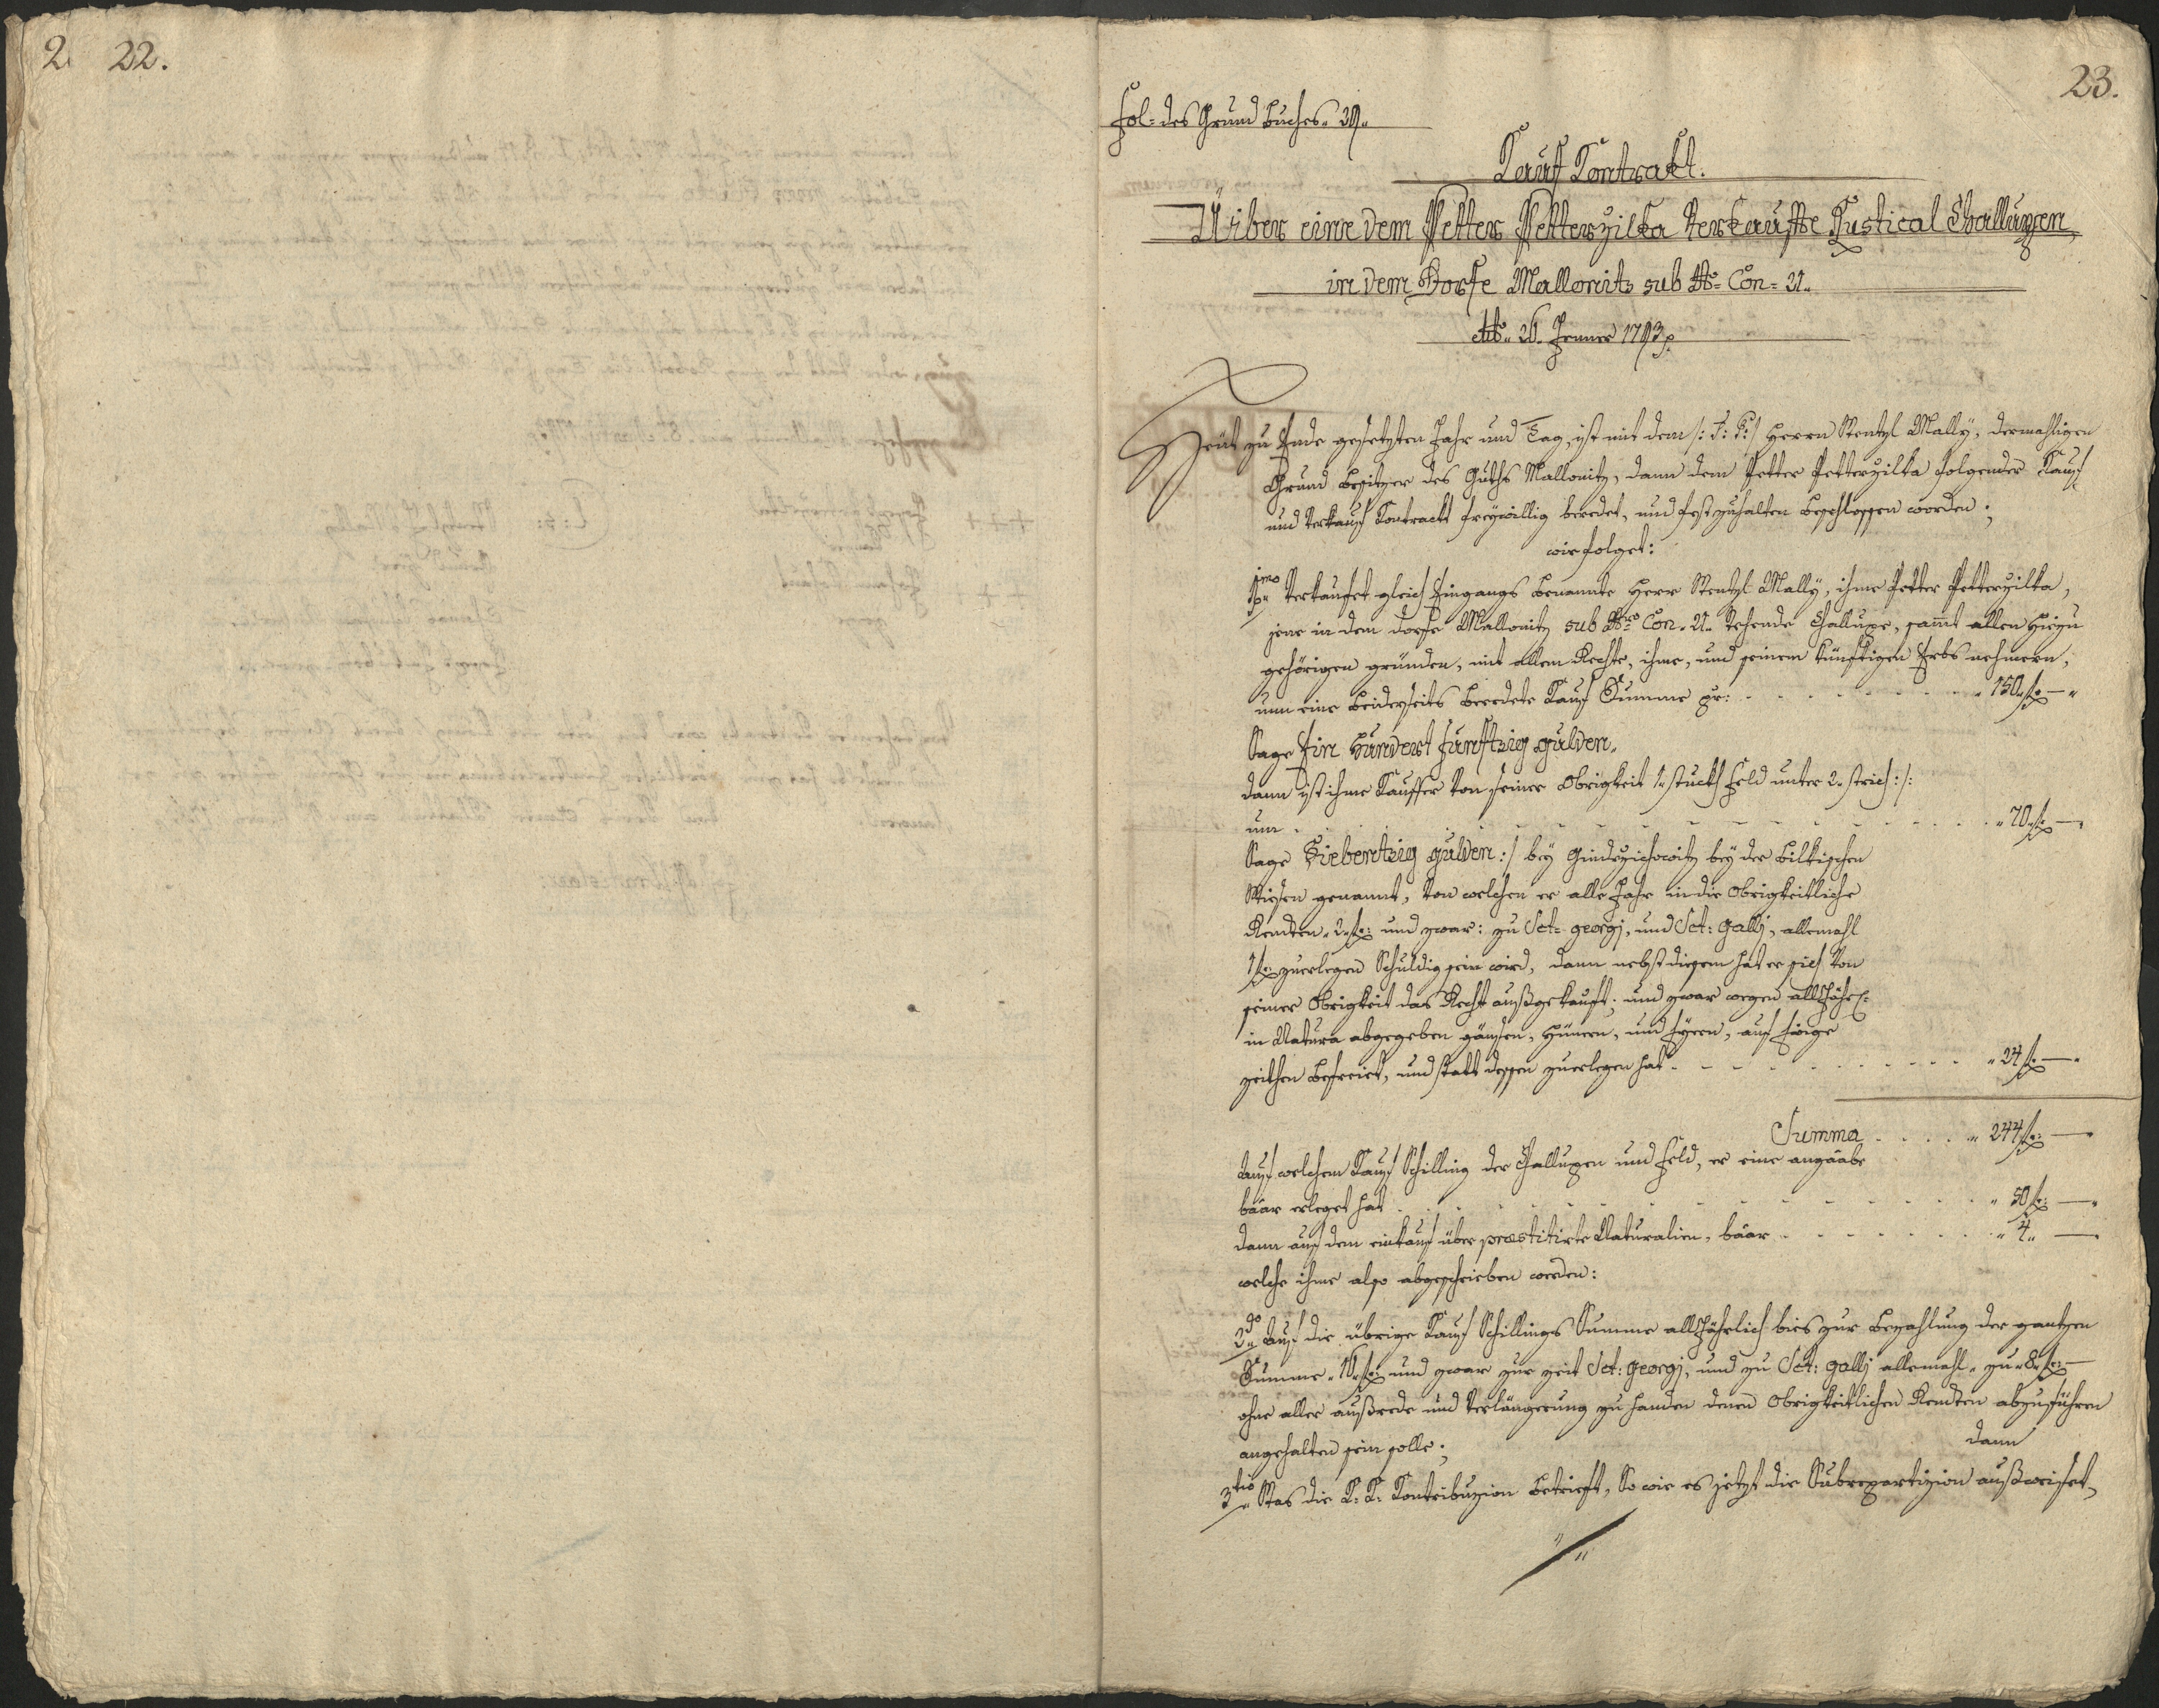 22.
23.
Fol= des Grund Buches
Kauf Kontrakt.
Uiber eine dem Petter Petterzilka Verkaufte Rustical Challupen,
in dem Dorfe Mallonitz sub No= Con=
Jenner 1793
Heut zu Ende gesetzten Jahr und Tag, ist mit dem /: T: T: / Herrn Wentzl Mally, dermahligen
Grund Besitzer des Guths Mallonitz, dann dem Petter Petterzilka folgender Kauf
und Verkauf Kontrackt freywillig beredet, und fest zuhalten beschlossen worden;
wie folget:
1mo Verkaufet gleich Eingangs benannte Herr Wentzl Mally, ihme Petter Petterzilka,
jene in dem Dorfe Mallonitz sub Nro Con. stehende Challupe, samt allen hiezu
gehörigen gründen, mit allem Rechte, ihme, und seinem künftigen Erbs nehmern,
um eine beiderseits beredete Kauf Summe pr: „ 150„ f: — „
Sage Ein Hundert Funftzig gulden.
dann ist ihme Kauffer von seiner Obrigkeit 1„ stuck Feld unter 2„ strich :/:
um „ 70„ f: — „
Sage Siebentzig gulden :/ bey bey der
Wiesen genannt, von welchen er alle Jahr in die Obrigkeitliche
Rendten „ 2„ f: und zwar: zu Sct= georgj, und Sct: gallj, allemahl
1 f: zuerlegen Schuldig sein wird, dann nebst diesem hat er sich von
seiner Obrigkeit das Recht außgekauft; und zwar wegen alljähr:
in Natura abgegeben gänsen, Hünern, und Eyern, auf Ewige
zeithen befreiet, und statt dessen zuerlegen hat „ 24 f: — „
Summa „ 244 f: — „
Auf welchem Kauf Schilling der Challupen und Feld, er eine angaabe
baar erleget hat „ 50 f: — „
dann auf dem einkauf über præstitirte Naturalien, baar „ 4„ —
welche ihme also abgeschrieben werden:
2do Auf die übrige Kauf Schillings Summe alljährlich bies zur bezahlung der gantzen
Summe „ 16„ f: und zwar zur zeit Sct: georgj, und zu Sct: gallj allemahl „ zu „ 8„ f: —
ohne aller außrede und Verlängerung zu handen denen Obrigkeitlichen Rendten abzuführen
angehalten sein solle; dann
3tio Was die K: K: Kontribuzion betrieft, So wie es jetzt die Subrepartizion außweiset,